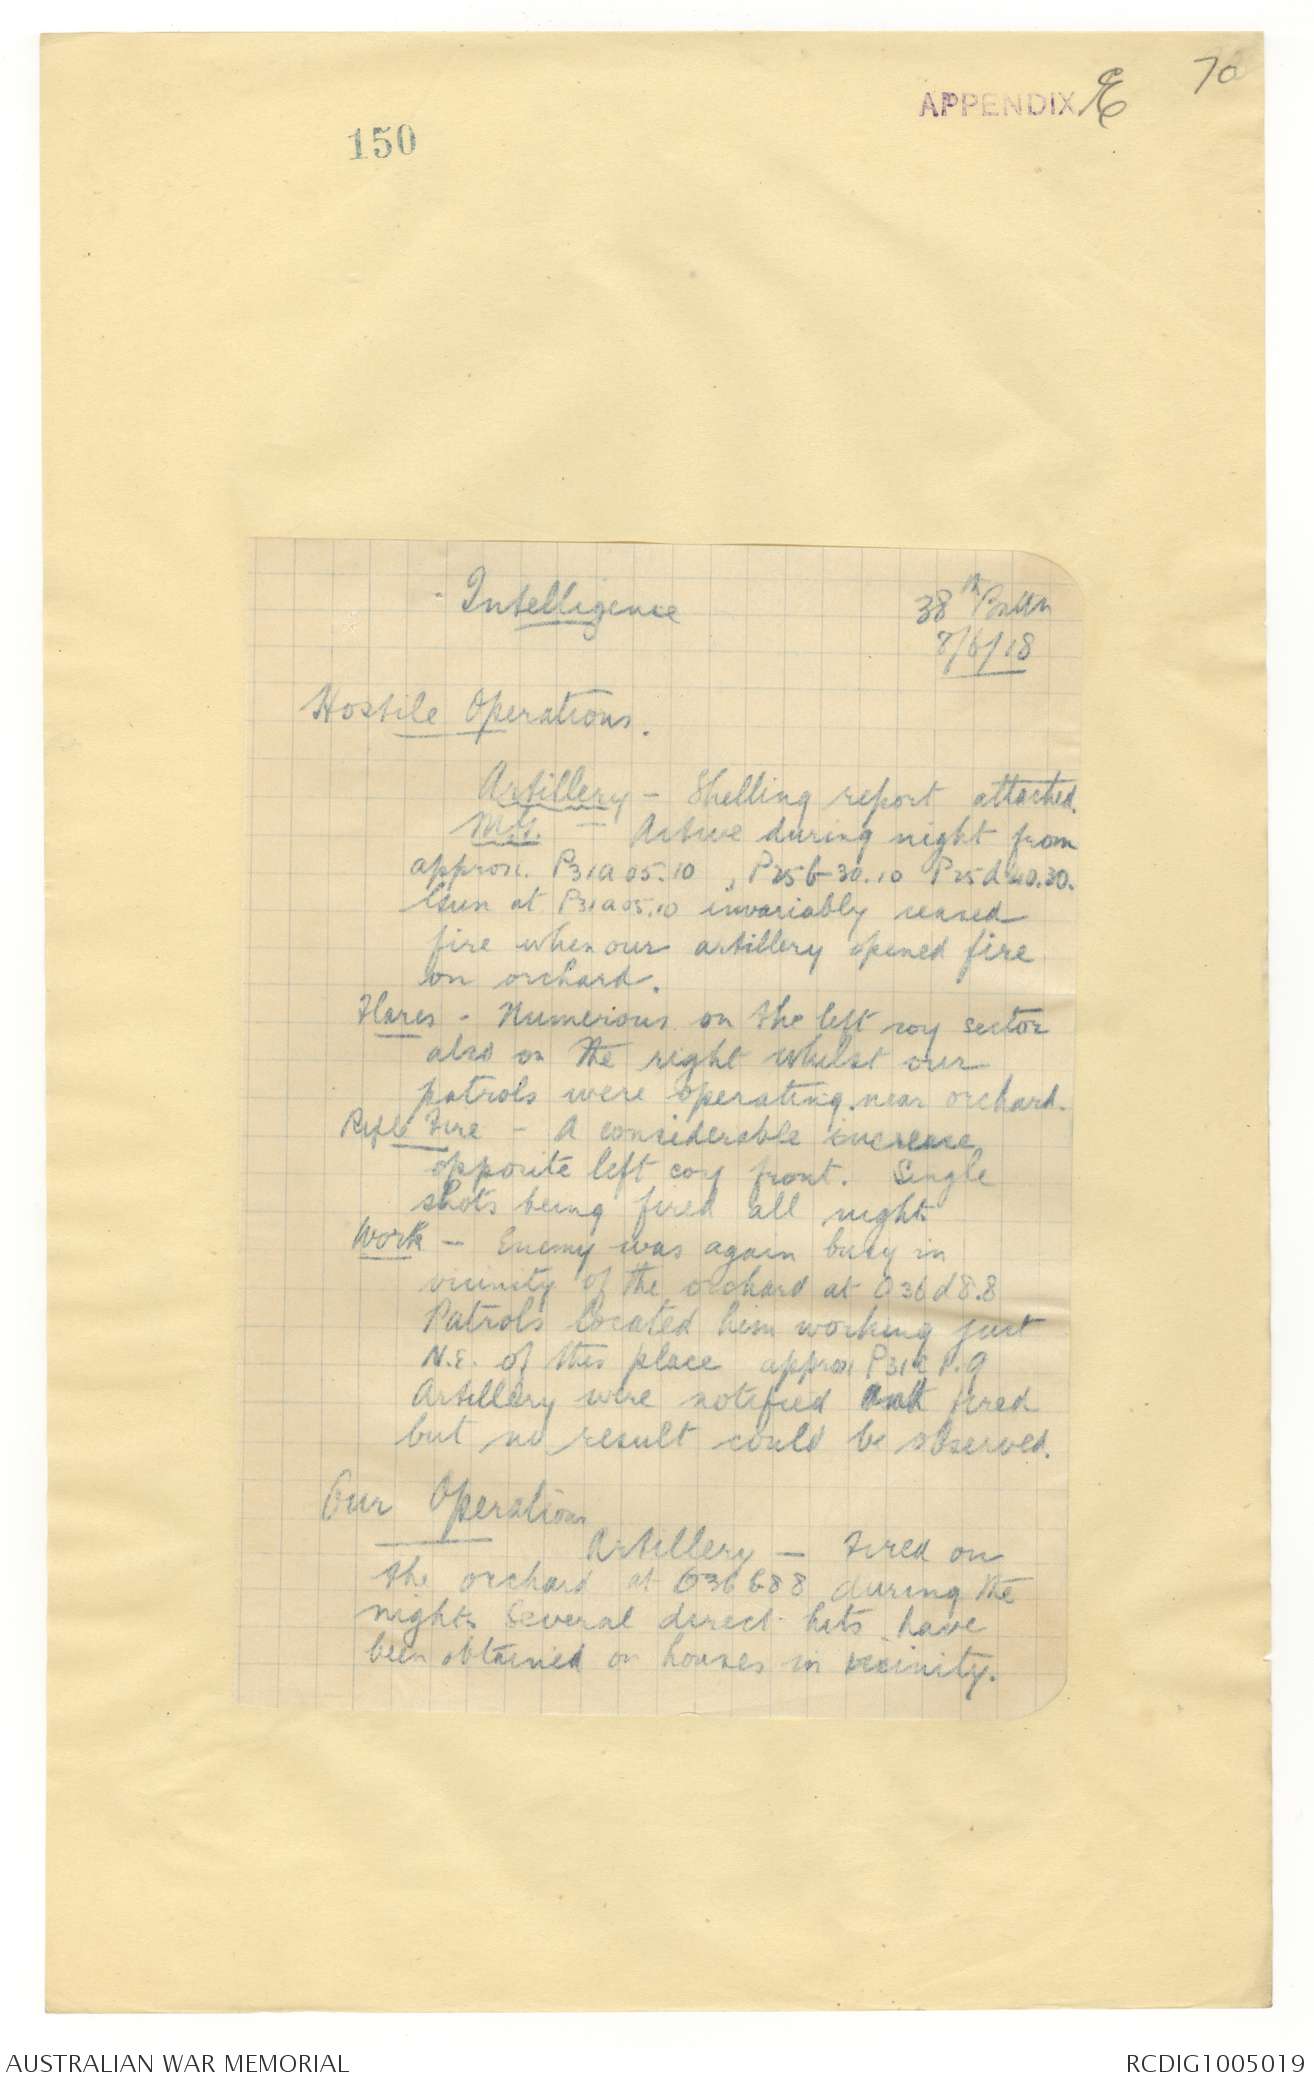 70
APPENDIX E
150
Intelligence
38th Battn
8/6/18
Hostile Operations.
Artillery - Shelling report attached.
M.G. - Active during night from
approx. P31a05.10, P25b30.10 P25d40.30.
Gun at P31a05.10 invariably ceased
fire when our artillery opened fire
on orchard.
Flares - Numerous on the left coy sector
also on the right whilst our
patrols were operating near orchard.
Rifle Fire - A considerable increase
opposite left coy front. Single
shots being fired all night
Work - Enemy was again busy in
vicinity of the orchard at O36d8.8
Patrols located him working just
N.E. of this place approx P31c 1.9
Artillery were notified and fired
but no result could be observed.
Our Operations
Artillery - Fired on
the orchard at O36b88 during the
night. Several direct hits have
been obtained on houses in vicinity.
AUSTRALIAN WAR MEMORIAL
RCDIG1005019